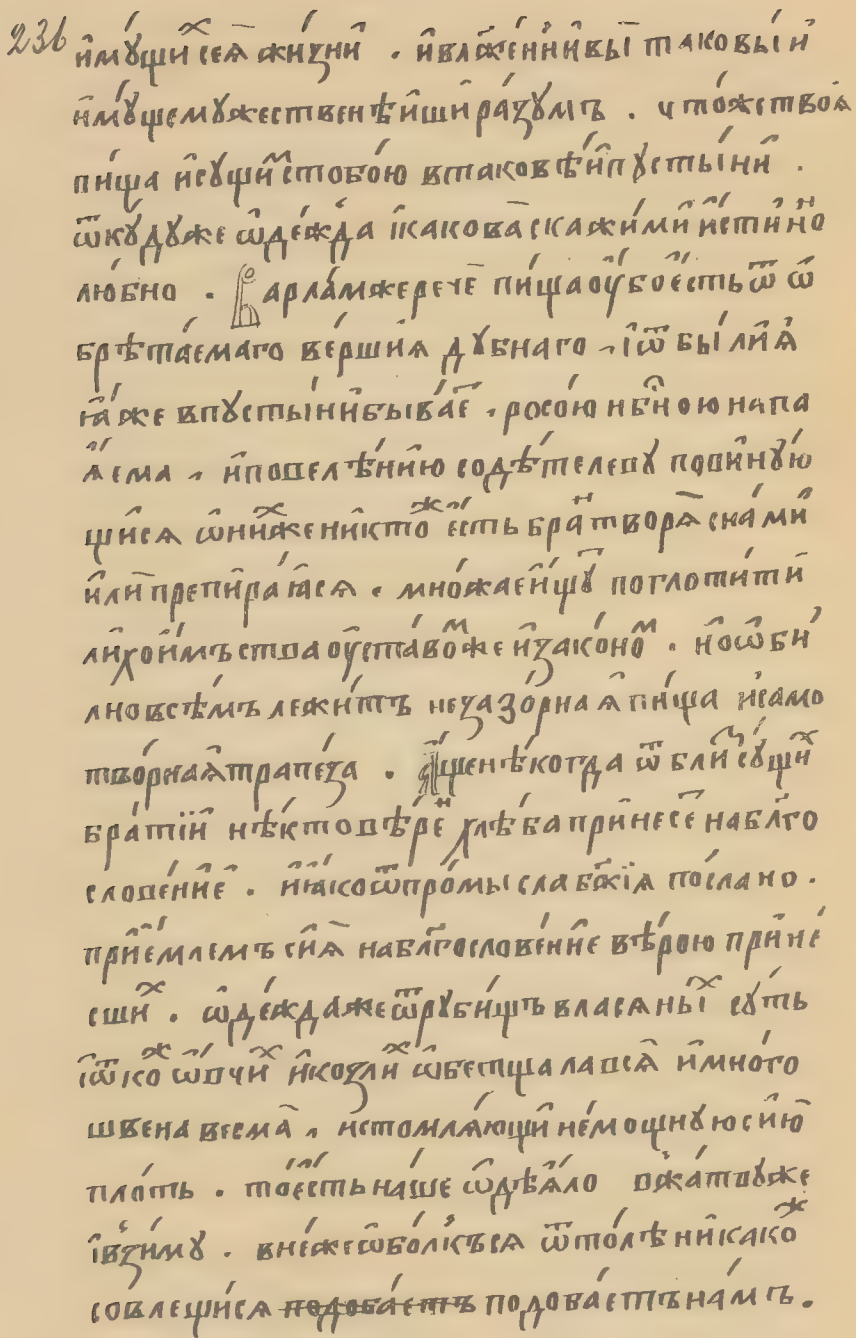 236
и҆мꙋ́щих сеѧ̀ жи́зни . и҆блаже́нни вы̀ таковы́и и҆
и҆мꙋ́ще мꙋжественѣ́иши ра́зꙋмъ . что́же твоѧ̀
пи́ща и҆сꙋ́щим стобо́ю втаковѣ́и пꙋсты́ни .
ѿкꙋ́дꙋже ѡ҆де́жда і҆какова̀ скажи́ми и҆́стинно
лю́бно . Варла́мже рече̄ пи́ща ᲂу҆́бо е҆́сть ѿ ѡ҆
брѣта́емаго ве́ршиѧ дꙋбнаго , і҆ѿ бы́лиѧ
ꙗ҆́же впꙋсты́ни быва́е̄ . росо́ю нбⷩ҇ою напа
ѧ҆́ема , и҆повелѣ́нию содѣ́телевꙋ повинꙋ́ю
щисѧ ѡ҆ни́хже никто́ж е҆́сть бра́н творѧ̀ сна́ми
и҆лѝ препира́ꙗсѧ . мно́жаеишꙋ̄ поглоти́ти
лихоимъства ᲂу҆ста́вомже и҆зако́ном . но ѡ҆би́
лно всѣ́мъ лежи́тъ незазо́рнаѧ пи́ща и҆само
тво́рнаѧ трапе́за . А҆́ще нѣ́когда ѿ бли́м сꙋ́щих
бра́тїи нѣ́кто вѣ́рен хлѣ́ба принесе̄ на блг҇о
слове́ние . и҆ꙗ҆ко ѿпро́мысла бж҇їѧ по́слано .
прие́млемъ сиѧ̀ на блг҇ослове́ние вѣ́рою прине́
сших . ѡ҆де́ждаже ѿрꙋби́щъ власѧны́х сꙋ́ть
і҆ѿ кож ѡ҆́вчих и҆ко́злих ѡ҆бетшалавсѧ и҆мно́го
швена весма̀ , истомлѧ́ющи не́мощнꙋю сию̀
пло́ть . то́ е҆́сть на́ше ѡ҆дѣѧ́ло вжа́твꙋже
і҆взи́мꙋ . вне́же ѡ҆бо́лкъсѧ ѿто́лѣ никако́ж
совлещи́сѧ подоба́етъ подоба́етъ на́мъ .